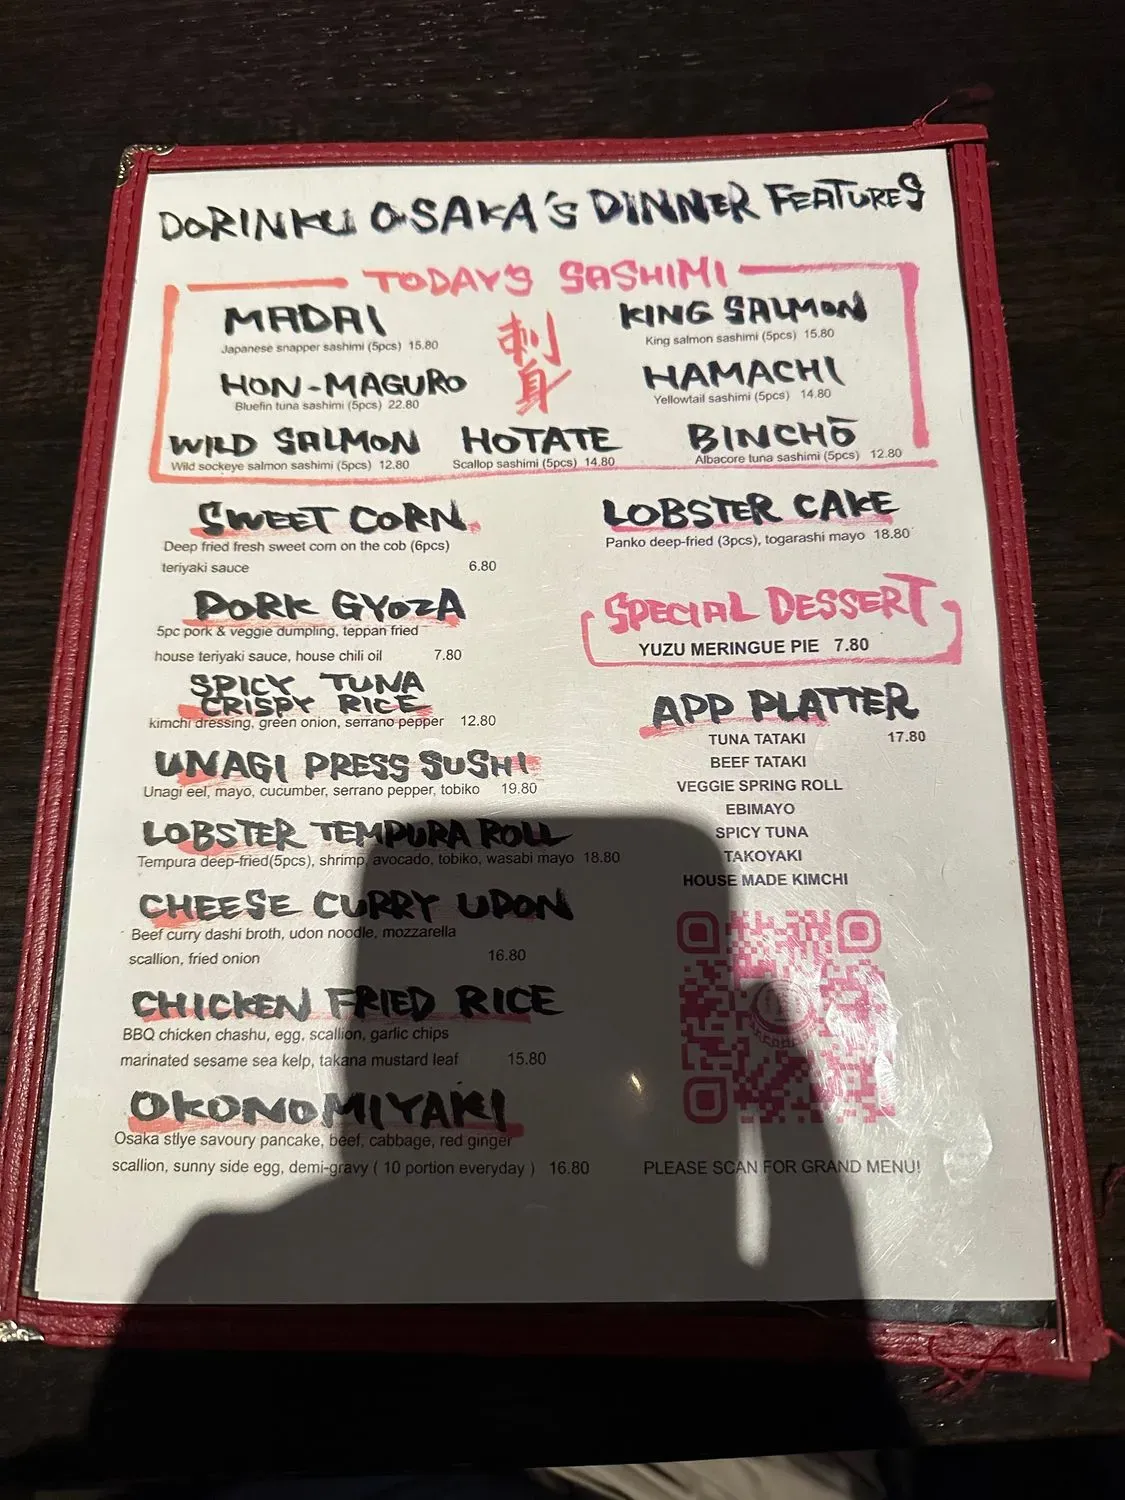 DORINKU OSAKA'S DINNER FEATURES
TODAY'S SASHIMI
MADAI
Japanese snapper sashimi (5pcs) 15.80
刺身
KING SALMON
King salmon sashimi (5pcs) 15.80
HON-MAGURO
Bluefin tuna sashimi (5pcs) 22.80
HAMACHI
Yellowtail sashimi (5pcs) 14.80
WILD SALMON
Wild sockeye salmon sashimi (5pcs) 12.80
HOTATE
Scallop sashimi (5pcs) 14.80
BINCHŌ
Albacore tuna sashimi (5pcs) 12.80
SWEET CORN
Deep fried fresh sweet corn on the cob (6pcs)
teriyaki sauce 6.80
PORK GYOZA
5pc pork & veggie dumpling, teppan fried
house teriyaki sauce, house chili oil 7.80
SPICY TUNA
CRISPY RICE
kimchi dressing, green onion, serrano pepper 12.80
UNAGI PRESS SUSHI
Unagi eel, mayo, cucumber, serrano pepper, tobiko 19.80
LOBSTER TEMPURA ROLL
Tempura deep-fried(5pcs), shrimp, avocado, tobiko, wasabi mayo 18.80
CHEESE CURRY UDON
Beef curry dashi broth, udon noodle, mozzarella
scallion, fried onion 16.80
CHICKEN FRIED RICE
BBQ chicken chashu, egg, scallion, garlic chips
marinated sesame sea kelp, takana mustard leaf 15.80
OKONOMIYAKI
Osaka stlye savoury pancake, beef, cabbage, red ginger
scallion, sunny side egg, demi-gravy ( 10 portion everyday ) 16.80
LOBSTER CAKE
Panko deep-fried (3pcs), togarashi mayo 18.80
SPECIAL DESSERT
YUZU MERINGUE PIE 7.80
APP PLATTER
TUNA TATAKI 17.80
BEEF TATAKI
VEGGIE SPRING ROLL
EBIMAYO
SPICY TUNA
TAKOYAKI
HOUSE MADE KIMCHI
PLEASE SCAN FOR GRAND MENU!